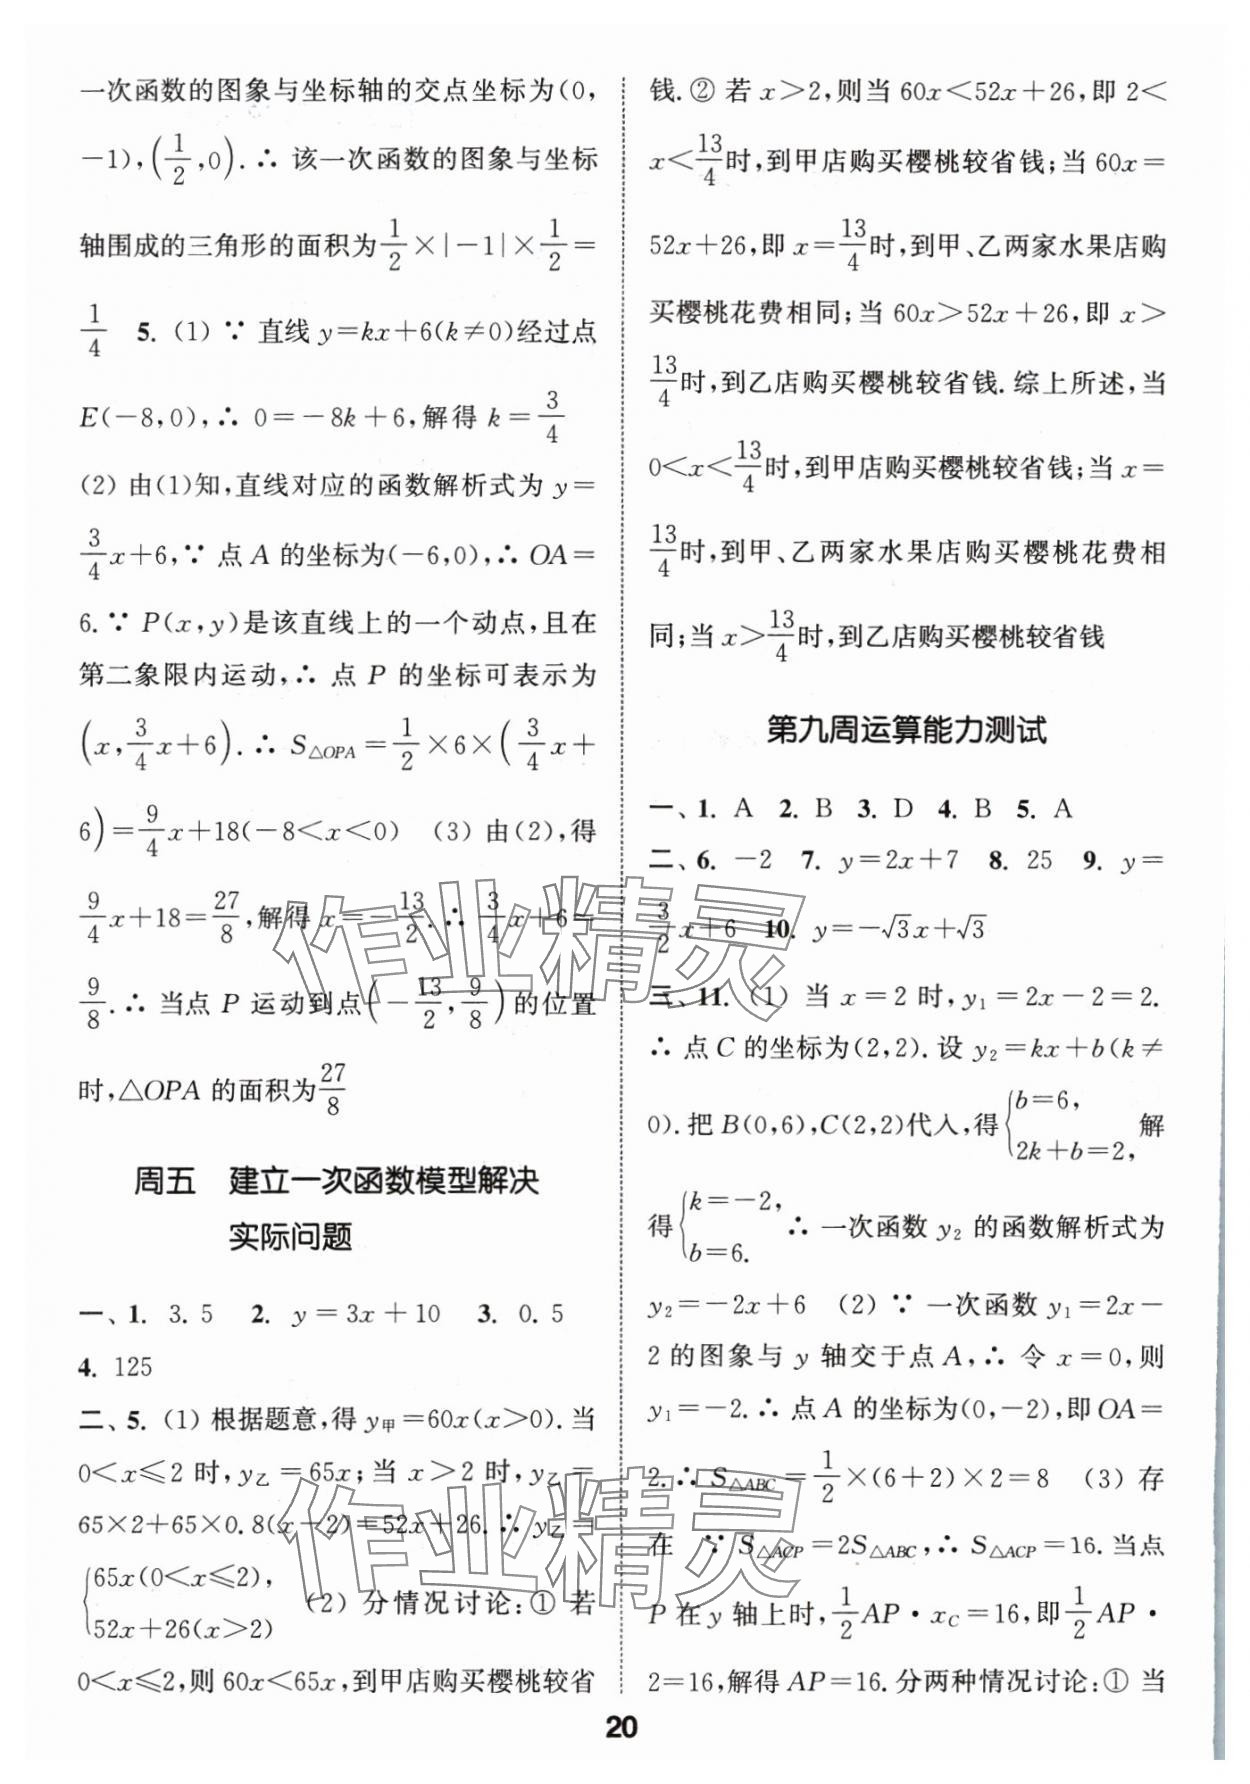 一次函数的图象与坐标轴的交点坐标为(0,
-1),(1/2,0).∴ 该一次函数的图象与坐标
轴围成的三角形的面积为1/2×|-1|×1/2=
1/4 5. (1) ∵ 直线 y=kx+6(k≠0)经过点
E(-8,0),∴ 0=-8k+6,解得 k=3/4
(2) 由(1)知,直线对应的函数解析式为 y=
3/4x+6,∵ 点 A 的坐标为(-6,0),∴ OA=
6.∵ P(x,y)是该直线上的一个动点,且在
第二象限内运动,∴ 点 P 的坐标可表示为
(x,3/4x+6).∴ S△OPA=1/2×6×(3/4x+
6)=9/4x+18(-8<x<0) (3) 由(2),得
9/4x+18=27/8,解得 x=-13/2.∴ 3/4x+6=
9/8.∴ 当点 P 运动到点(-13/2,9/8)的位置
时,△OPA 的面积为27/8
周五 建立一次函数模型解决
实际问题
一、1. 3.5 2. y=3x+10 3. 0.5
4. 125
二、5. (1) 根据题意,得 y甲=60x(x>0). 当
0<x≤2 时,y乙=65x;当 x>2 时,y乙=
65×2+65×0.8(x-2)=52x+26.∴ y乙=
{65x(0<x≤2),
52x+26(x>2) (2) 分情况讨论:① 若
0<x≤2,则 60x<65x,到甲店购买樱桃较省
钱.② 若 x>2,则当 60x<52x+26,即 2<
x<13/4时,到甲店购买樱桃较省钱;当 60x=
52x+26,即 x=13/4时,到甲、乙两家水果店购
买樱桃花费相同;当 60x>52x+26,即 x>
13/4时,到乙店购买樱桃较省钱.综上所述,当
0<x<13/4时,到甲店购买樱桃较省钱;当 x=
13/4时,到甲、乙两家水果店购买樱桃花费相
同;当 x>13/4时,到乙店购买樱桃较省钱
第九周运算能力测试
一、1. A 2. B 3. D 4. B 5. A
二、6. -2 7. y=2x+7 8. 25 9. y=
3/2x+6 10. y=-√3x+√3
三、11. (1) 当 x=2 时,y₁=2x-2=2.
∴ 点 C 的坐标为(2,2). 设 y₂=kx+b(k≠
0). 把 B(0,6),C(2,2)代入,得{b=6,
2k+b=2, 解
得{k=-2,
b=6. ∴ 一次函数 y₂ 的函数解析式为
y₂=-2x+6 (2) ∵ 一次函数 y₁=2x-
2 的图象与 y 轴交于点 A,∴ 令 x=0,则
y₁=-2.∴ 点 A 的坐标为(0,-2),即 OA=
2.∴ S△ABC=1/2×(6+2)×2=8 (3) 存
在 ∵ S△ACP=2S△ABC,∴ S△ACP=16. 当点
P 在 y 轴上时,1/2AP·xC=16,即1/2AP·
2=16,解得 AP=16. 分两种情况讨论:① 当
20
作业精灵
作业精灵